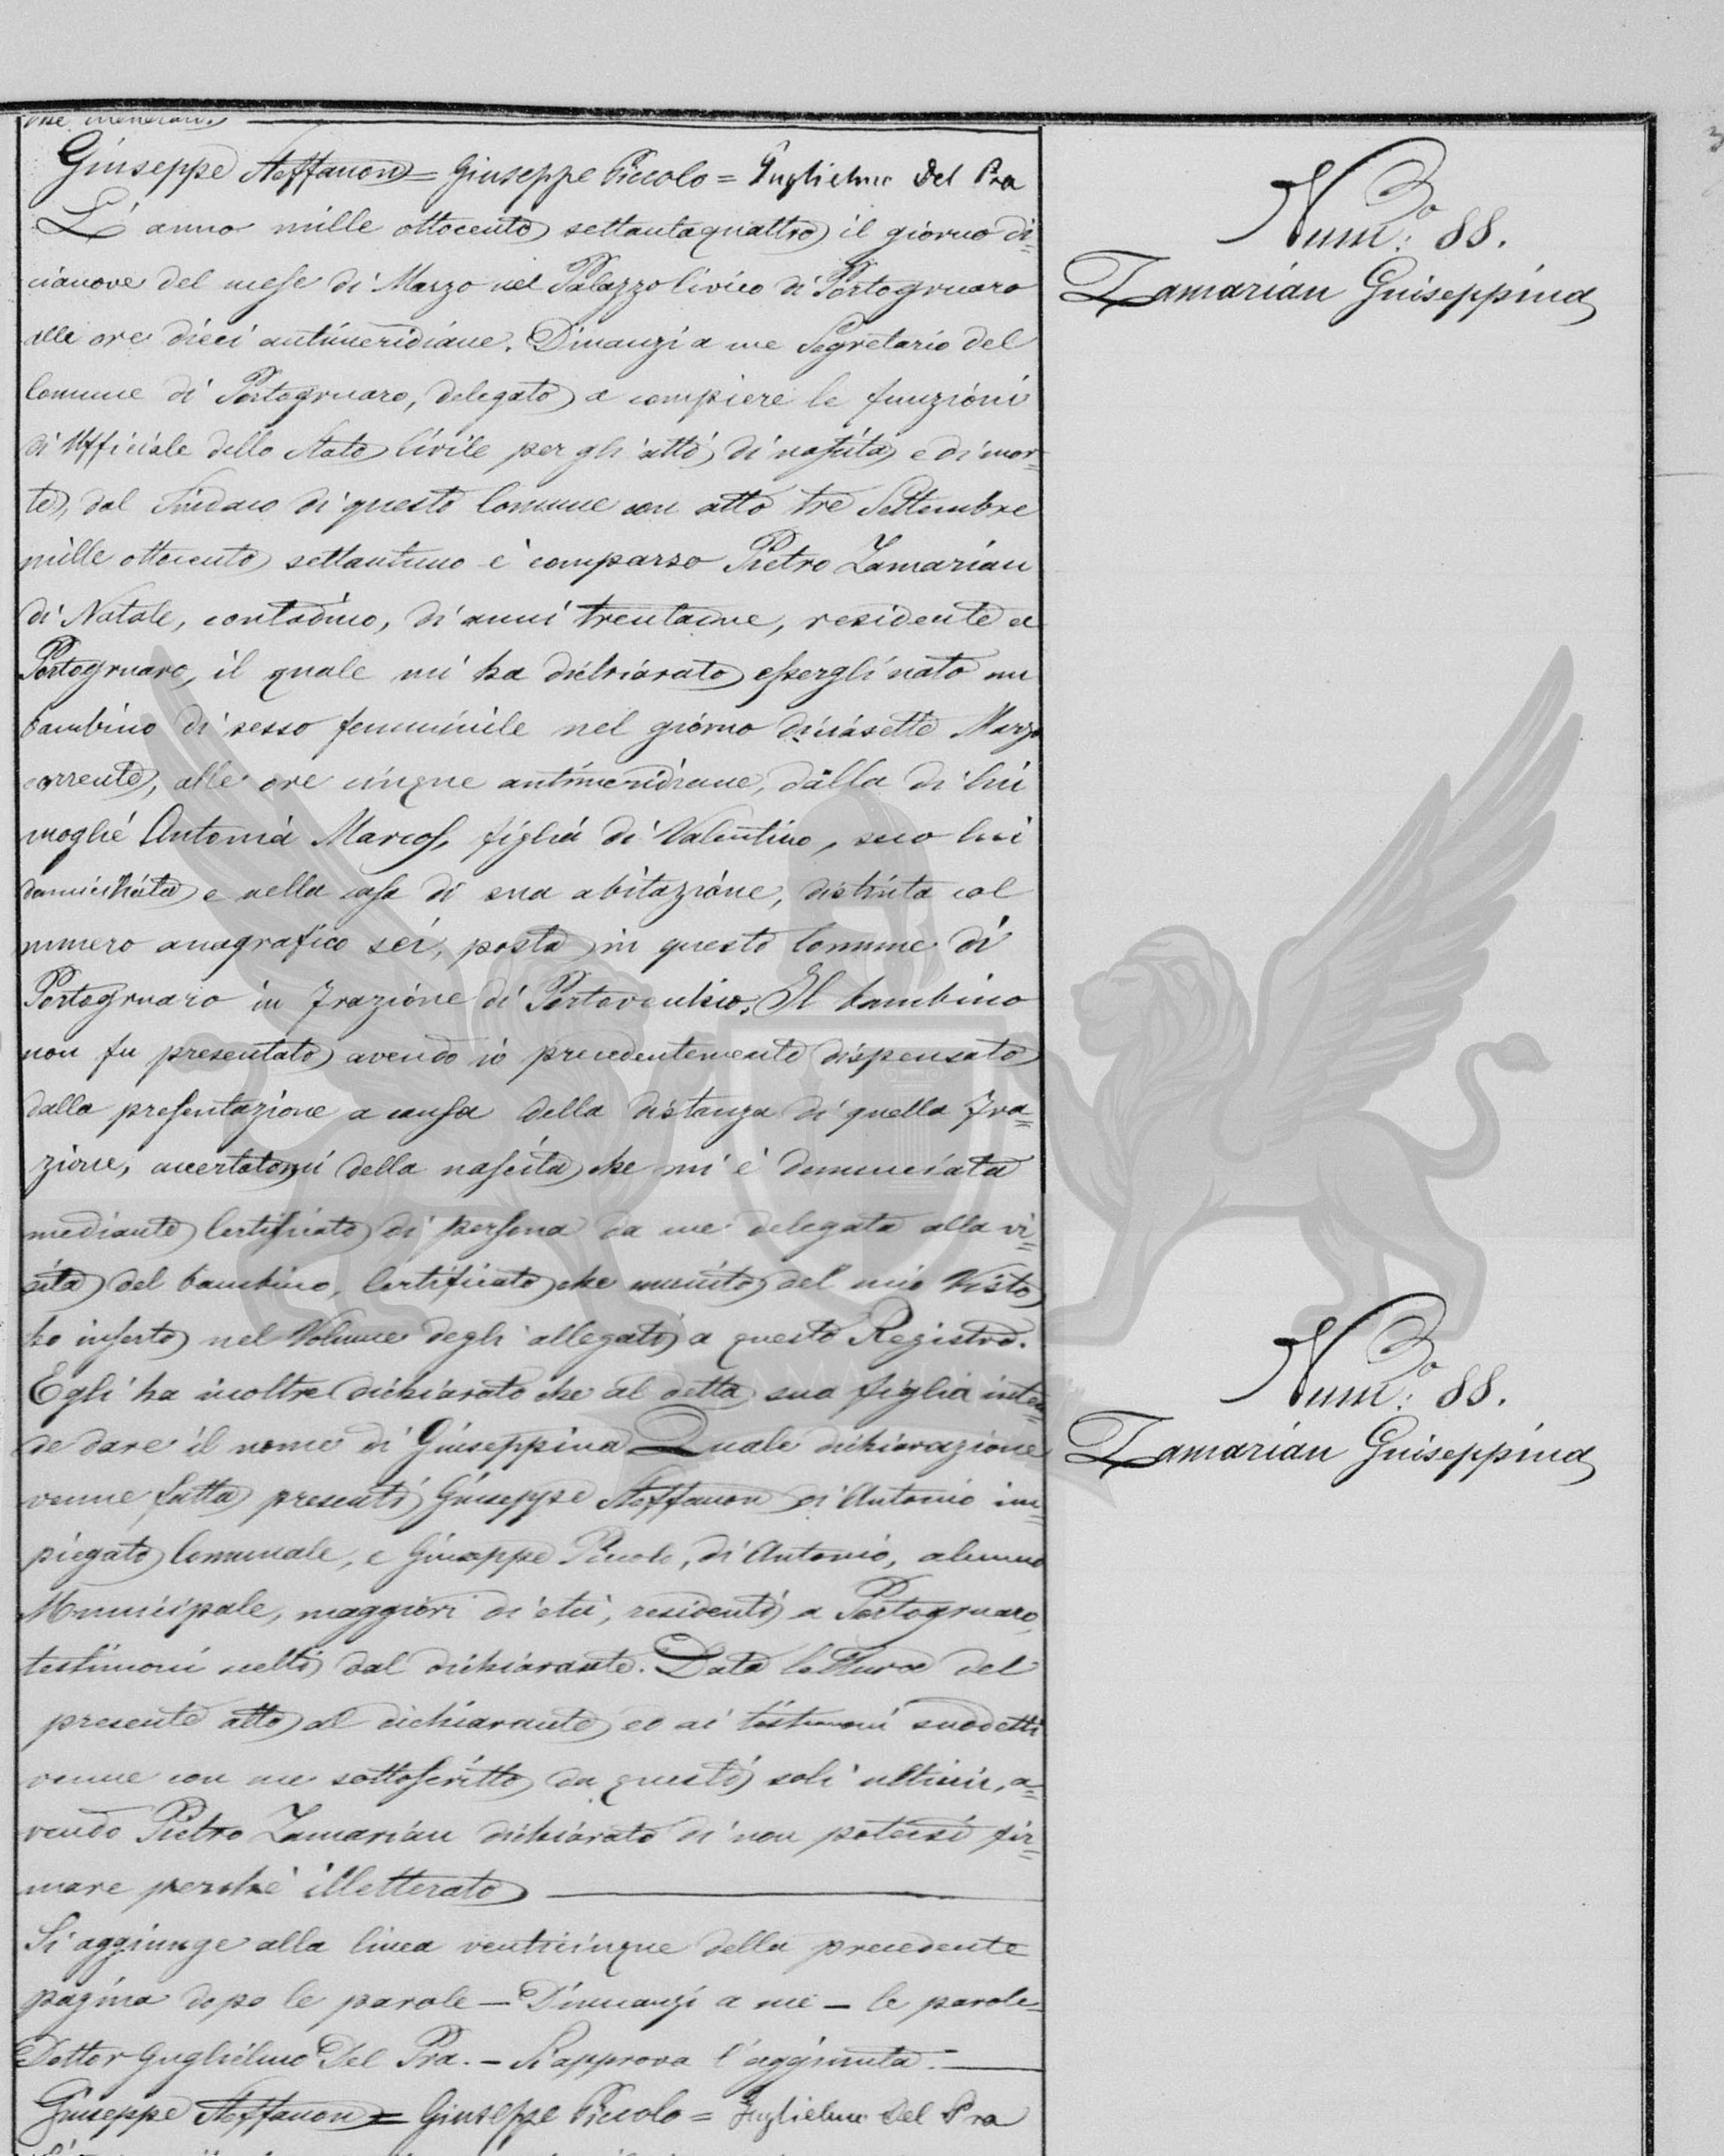 Giuseppe Steffanon = Giuseppe Piccolo = Guglielmo Del Pra
L'anno mille ottocento settantaquattro il giorno di=
cianove del mese di Marzo nel Palazzo Civico di Portogruaro
alle ore dieci antimeridiane. Dinanzi a me Segretario del
Comune di Portogruaro, delegato a compiere le funzioni
di Ufficiale dello Stato Civile per gli atti di nascita e di mor=
te, dal Sindaco di questo Comune con atto tre Settembre
mille ottocento settantuno è comparso Pietro Zamarian
di Natale, contadino, di anni trentadue, residente a
Portogruaro, il quale mi ha dichiarato essergli nato un
bambino di sesso femminile nel giorno diciasette Marzo
corrente, alle ore cinque antimeridiane, dalla di lui
moglie Antonia Marcos, figlia di Valentino, seco lui
domiciliata e nella casa di sua abitazione, distinta col
numero anagrafico sei, posta in questo Comune di
Portogruaro in Frazione di Portovecchio. Il bambino
non fu presentato avendo io precedentemente dispensato
dalla presentazione a causa della distanza di quella Fra=
zione, accertatomi della nascita che mi è denunciata
mediante Certificato di persona da me delegata alla vi=
sita del bambino, Certificato che munito del mio Visto
ho inserto nel Volume degli allegati a questo Registro.
Egli ha inoltre dichiarato che al detta sua figlia inten=
de dare il nome di Giuseppina Quale dichiarazione
venne fatta presenti Giuseppe Steffanon di Antonio im=
piegato Comunale, e Giuseppe Piccolo, di Antonio, alunno
Municipale, maggiori di età, residenti a Portogruaro,
testimoni scelti dal dichiarante. Data lettura del
presente atto al dichiarante ed ai testimoni suddetti
venne con me sottoscritto da questi soli ultimi, a=
vendo Pietro Zamarian dichiarato di non potersi fir=
mare perchè illetterato
Si aggiunge alla linea venticinque della precedente
pagina dopo le parole – Dinnanzi a me – le parole
Dottor Guglielmo Del Pra. – Si approva l'aggiunta. –
Giuseppe Steffanon = Giuseppe Piccolo = Guglielmo Del Pra
Num.o 88.
Zamarian Guiseppina
Num.o 88.
Zamarian Guiseppina